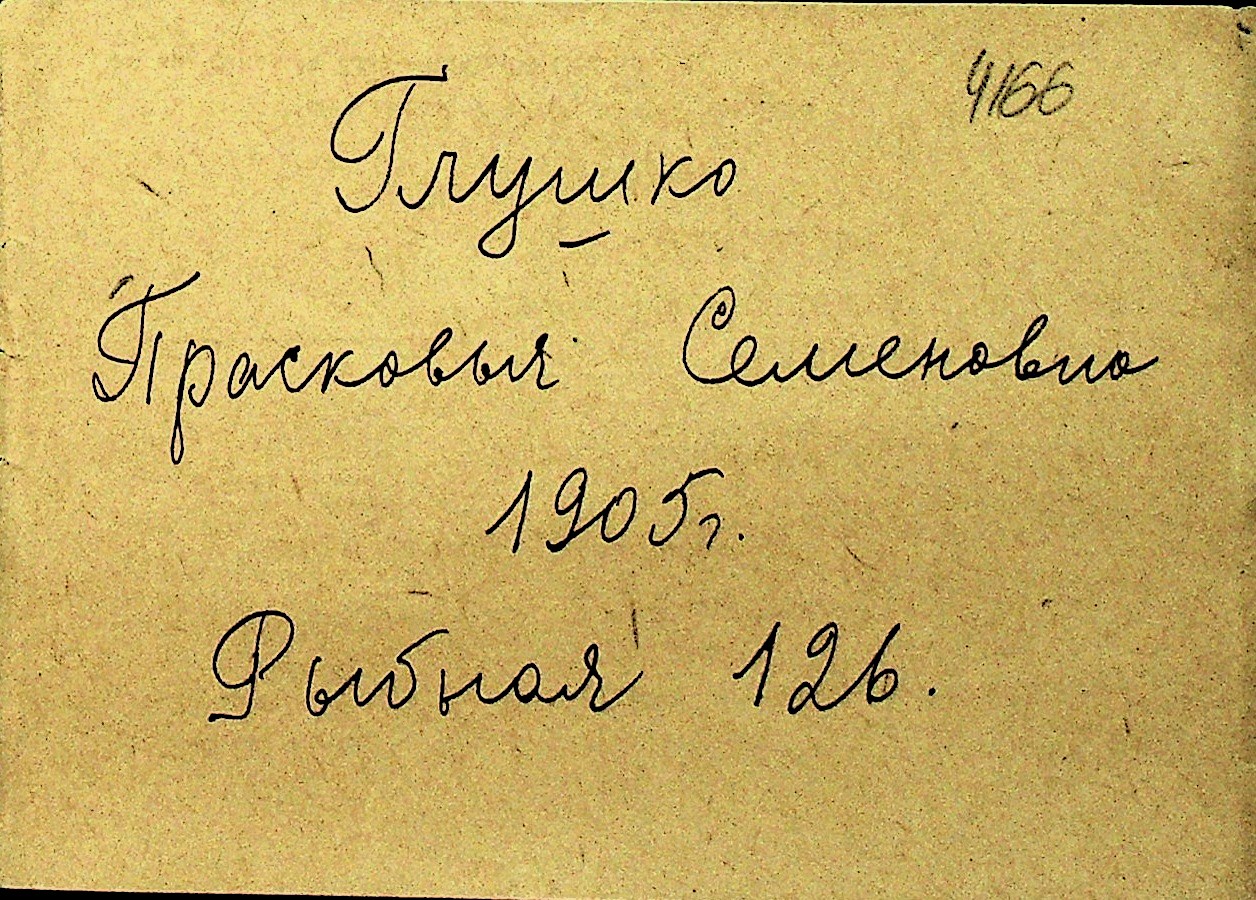 4166
Глушко
Прасковья Семеновна
1905г.
Рыбная 126.